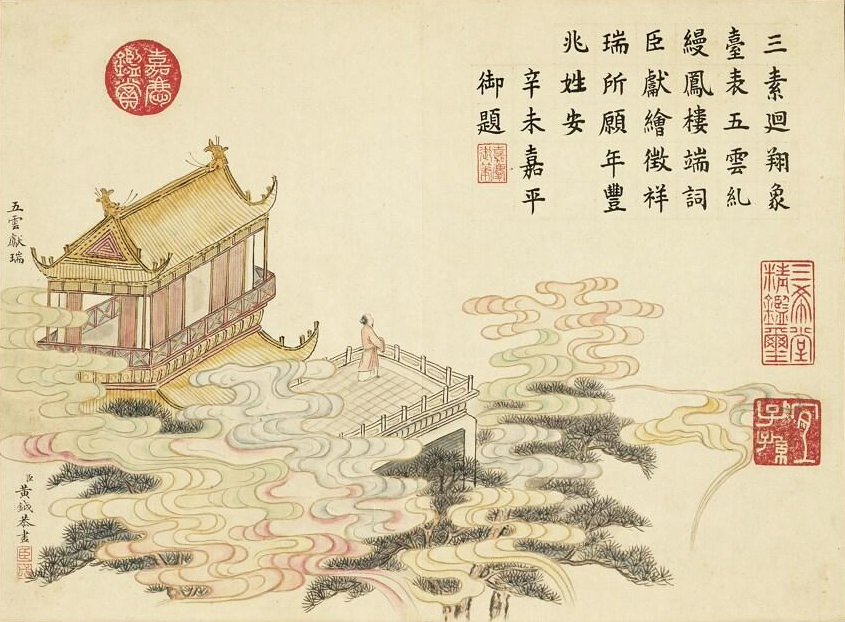 三素迴翔象
臺表五雲糺
縵鳳樓端詞
臣獻繪徵祥
瑞所願年豐
兆姓安
辛未嘉平
御題
嘉慶御筆
三希堂精鑑璽
宜子孫
嘉慶鑑賞
五雲獻瑞
臣黃鉞恭畫